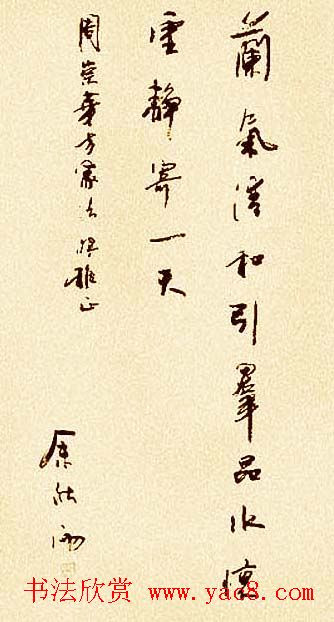 蘭氣清和引羣品水懷
虛靜寄一天
周崇華方家法雅正
余秋雨
书法欣赏 www.yac8.com